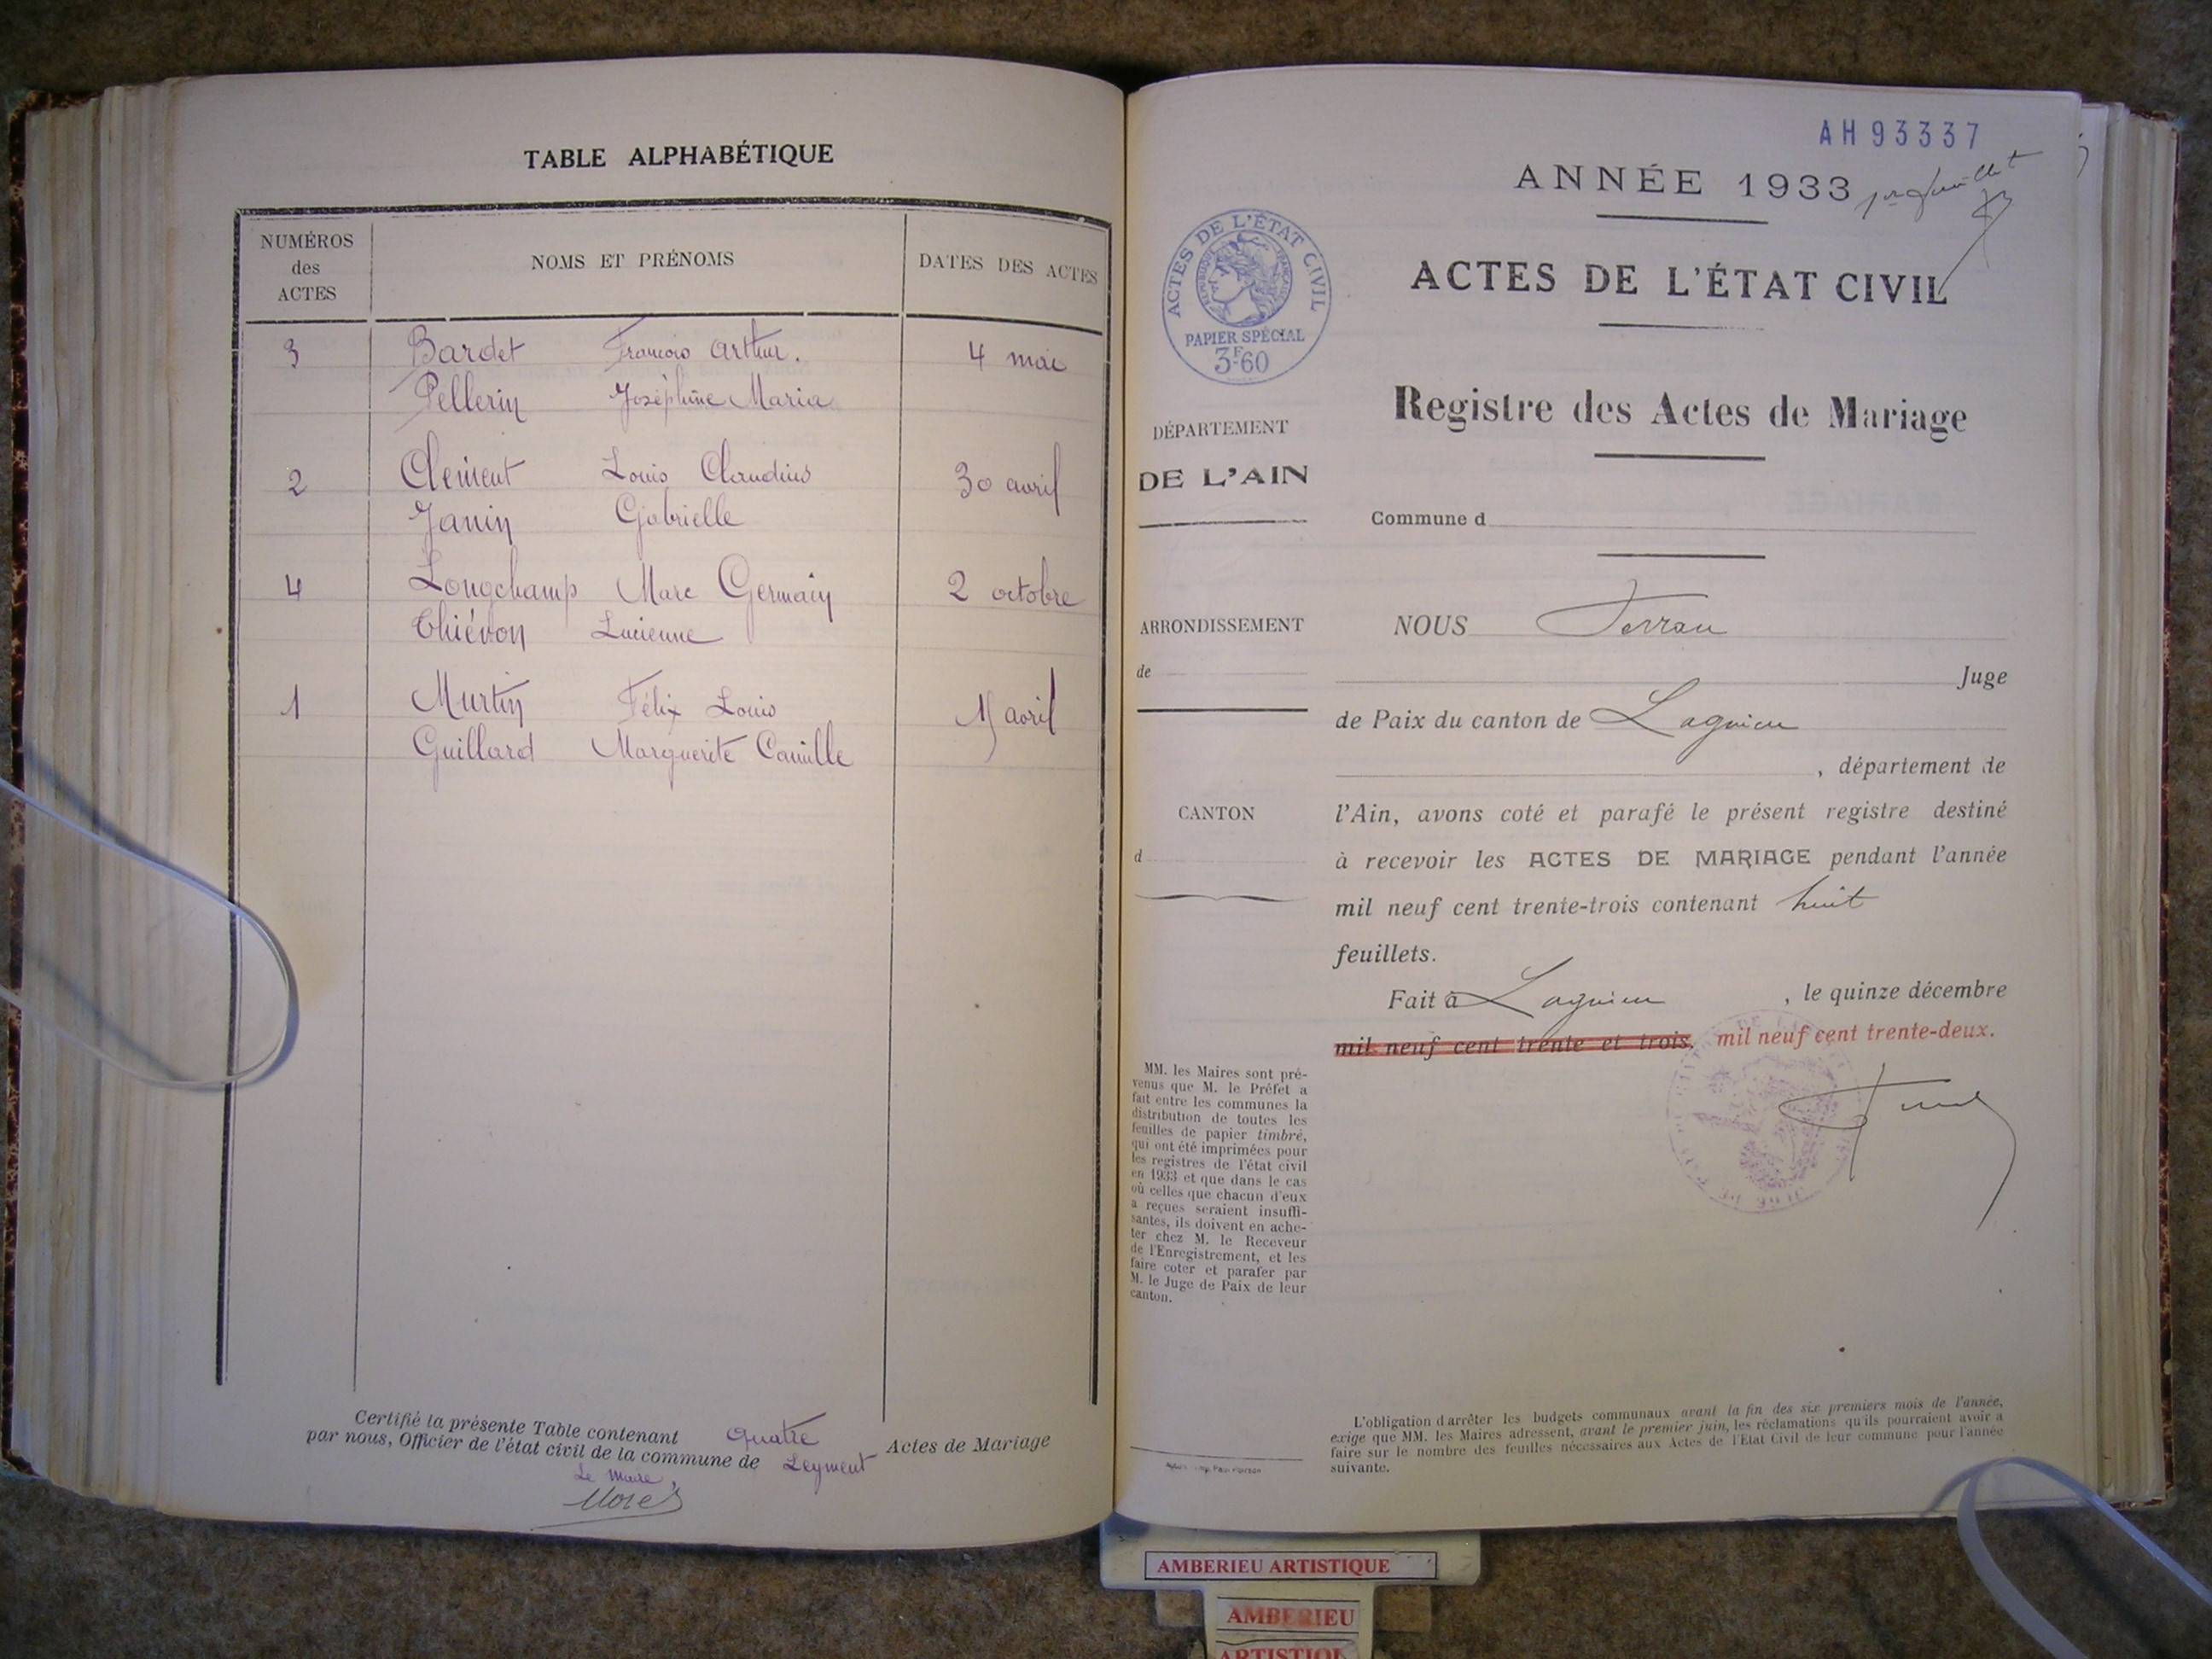 TABLE ALPHABÉTIQUE
NUMÉROS
des
ACTES
NOMS ET PRÉNOMS
DATES DES ACTES
3 Bardet François Arthur. 4 mai
Pellerin Joséphine Maria
2 Clément Louis Claudius 30 avril
Janin Gabrielle
4 Longchamp Marc Germain 2 octobre
Thiévon Lucienne
1 Murtin Félix Louis avril
Guillard Marguerite Camille
Certifié la présente Table contenant quatre Actes de Mariage
par nous, Officier de l'état civil de la commune de Leyment
Le Maire,
AH 93337
ANNÉE 1933
1er feuillet
ACTES DE L'ÉTAT CIVIL
RÉPUBLIQUE FRANÇAISE
PAPIER SPÉCIAL
3F60
ACTES DE L'ÉTAT CIVIL
Registre des Actes de Mariage
DÉPARTEMENT
DE L'AIN
Commune d
ARRONDISSEMENT
de
CANTON
d
NOUS
Juge
de Paix du canton de Lagnieu
, département de
l'Ain, avons coté et parafé le présent registre destiné
à recevoir les ACTES DE MARIAGE pendant l'année
mil neuf cent trente-trois contenant huit
feuillets.
Fait à Lagnieu , le quinze décembre
mil neuf cent trente et trois. mil neuf cent trente-deux.
MM. les Maires sont pré-
venus que M. le Préfet a
fait entre les communes la
distribution de toutes les
feuilles de papier timbré,
qui ont été imprimées pour
les registres de l'état civil
en 1933 et que dans le cas
où celles que chacun d'eux
a reçues seraient insuffi-
santes, ils doivent en ache-
ter chez M. le Receveur
de l'Enregistrement, et les
faire coter et parafer par
M. le Juge de Paix de leur
canton.
L'obligation d'arrêter les budgets communaux avant la fin des six premiers mois de l'année,
exige que MM. les Maires adressent, avant le premier juin, les réclamations qu'ils pourraient avoir à
faire sur le nombre des feuilles nécessaires aux Actes de l'Etat Civil de leur commune pour l'année
suivante.
AMBERIEU ARTISTIQUE
AMBERIEU